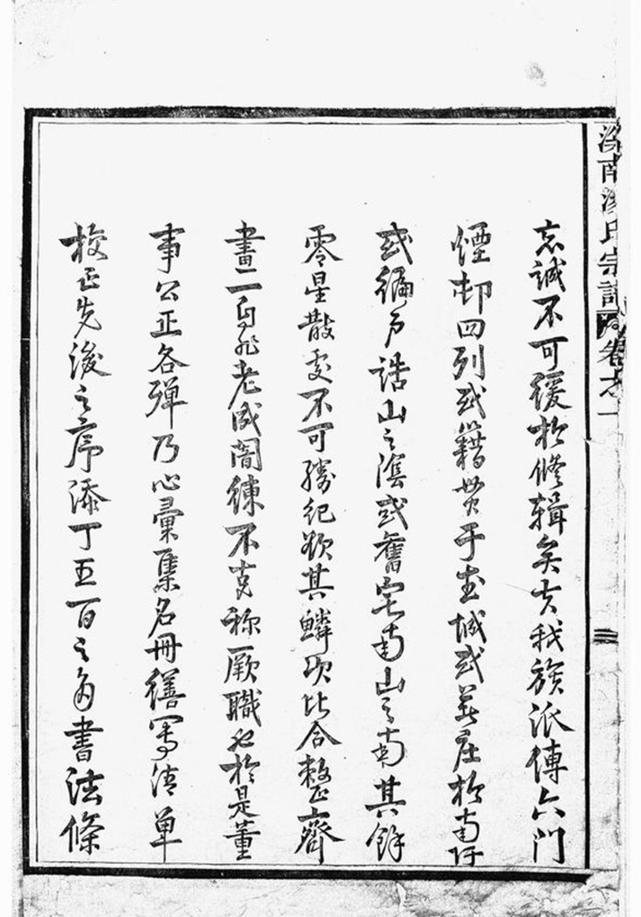 忘誠不可緩於修輯矣夫我族派傳六門
煙邨四列或籍貫于孟城或莊於南阡
或編戶誥山之陰或舊宅南山之南其餘
零星散處不可勝紀欲其鱗次比合整齊
畫一自非老成閤練不克称厥職也於是董
事公正各殫乃心彙集名冊繕寫清单
校正先後之序添丁五百之多書法條
南 氏宗譜 卷之一